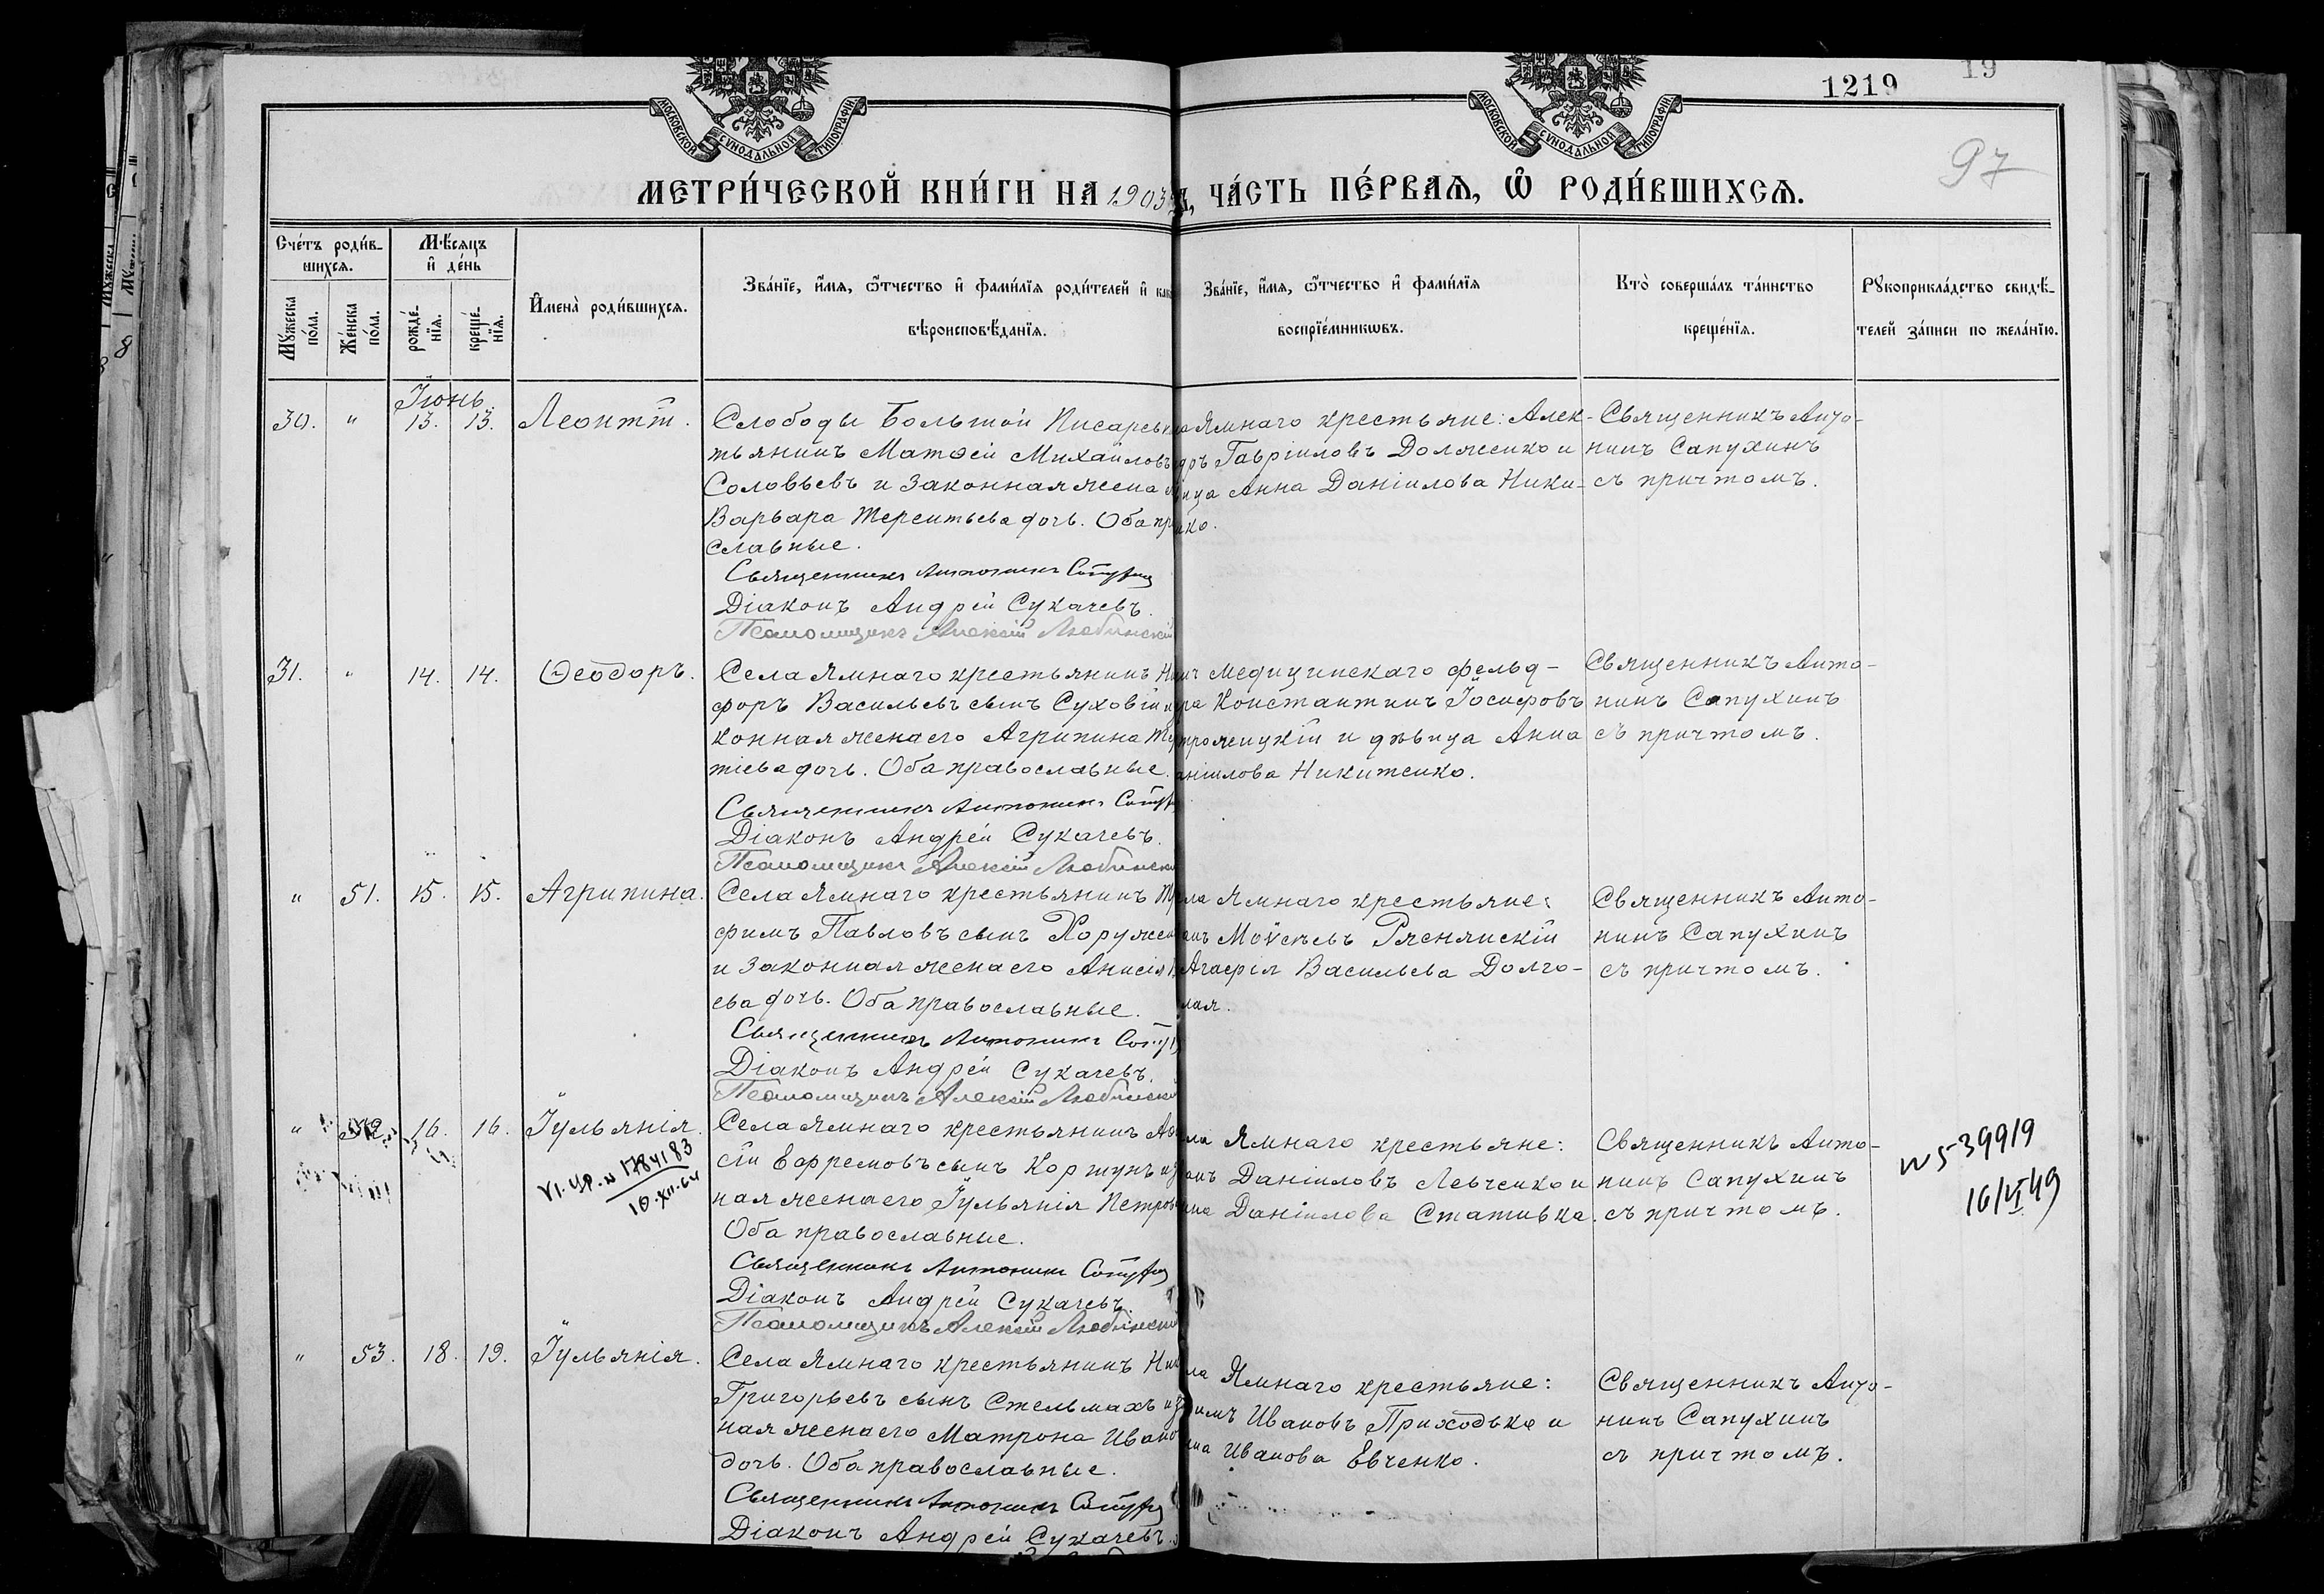 МОСКОВСКОЙ СѴНОДАЛЬНОЙ ТИПОГРАФІИ
МОСКОВСКОЙ СѴНОДАЛЬНОЙ ТИПОГРАФІИ
1219
19
97
МЕТРИ́ЧЕСКОЙ КНИ́ГИ НА 1903 ЧА́СТЬ ПЕ́РВАѦ, Ѡ҆ РОДИ́ВШИХСѦ.
Сче́тъ роди́в-
шихсѧ.
Мꙋ́жеска по́ла.
Же́нска по́ла.
Мѣ́сѧцъ и҆ де́нь
рожде́-нїѧ.
креще́-нїѧ.
И҆мена̀ роди́вшихсѧ.
Зва́нїе, и҆́мѧ, ѻ҆́тчество и҆ фами́лїѧ роди́телей и҆
вѣроисповѣ́данїѧ.
Зва́нїе, и҆́мѧ, ѻ҆́тчество и҆ фами́лїѧ
воспрїе́мникѡвъ.
Кто̀ соверша́лъ та́инство
креще́нїѧ.
Рꙋкоприкла́дство свидѣ́-
телей за́писи по жела́нїю.
Іюнь.
30. " 13. 13. Леонтій.
Слободы Большой Писарев
тьянинъ Матѳей Михайловъ
Соловьевъ и законная жена
Варвара Терентьева дочь. Оба пр
славные.
Священникъ Антонинъ Сапухин
Діаконъ Андрей Сукачевъ.
Псаломщикъ Алексій Любинскій
Ямнаго крестьяне: Алек-
дръ Гавріиловъ Долженко и
вица Анна Даніилова Ники-
нко.
Священникъ Анто-
нинъ Сапухинъ
съ причтомъ.
31. " 14. 14. Ѳеодоръ.
Села Ямнаго крестьянинъ Ни
форъ Васильевъ сынъ Суховій и
конная жена его Агрипина
тіева дочь. Оба православные.
Священникъ Антонинъ Сапух
Діаконъ Андрей Сукачевъ.
Псаломщикъ Алексій Любинскій
Медицинскаго фельд-
ра Константинъ Іосифовъ
трожицкій и дѣвица Анна
аніилова Никитенко.
Священникъ Анто-
нинъ Сапухинъ
съ причтомъ.
" 51. 15. 15. Агрипина.
Села Ямнаго крестьянинъ Тр
фимъ Павловъ сынъ Хоружен
и законная жена его Анисія
ева дочь. Оба православные.
Священникъ Антонинъ Сапу
Діаконъ Андрей Сукачевъ.
Псаломщикъ Алексій Любинскій
ла Ямнаго крестьяне:
анъ Моѵсеевъ Ряснянскій
Агафія Васильева Долго-
лая.
Священникъ Анто-
нинъ Сапухинъ
съ причтомъ.
" 52. 16. 16. Іульянія.
VI. цр. N 1784183
10.XII.64
Села Ямнаго крестьянинъ
сій Ефремовъ сынъ Коржунъ и з
ная жена его Іульянія Петров
Оба православные.
Священникъ Антонинъ Сапухин
Діаконъ Андрей Сукачевъ.
Псаломщикъ Алексій Любинскій
ла Ямнаго крестьяне:
анъ Даніиловъ Левченко и
ина Даніилова Стативка.
Священникъ Анто-
нинъ Сапухинъ
съ причтомъ.
N 539919
16/VI 49
" 53. 18. 19. Іульянія.
Села Ямнаго крестьянинъ Ник
Григорьевъ сынъ Стельмахъ и з
ная жена его Матрона Ивано
дочь. Оба православные.
Священникъ Антонинъ Сапухин
Діаконъ Андрей Сукачевъ.
ла Ямнаго крестьяне:
имъ Ивановъ Приходько и
на Иванова Евченко.
Священникъ Анто-
нинъ Сапухинъ
съ причтомъ.